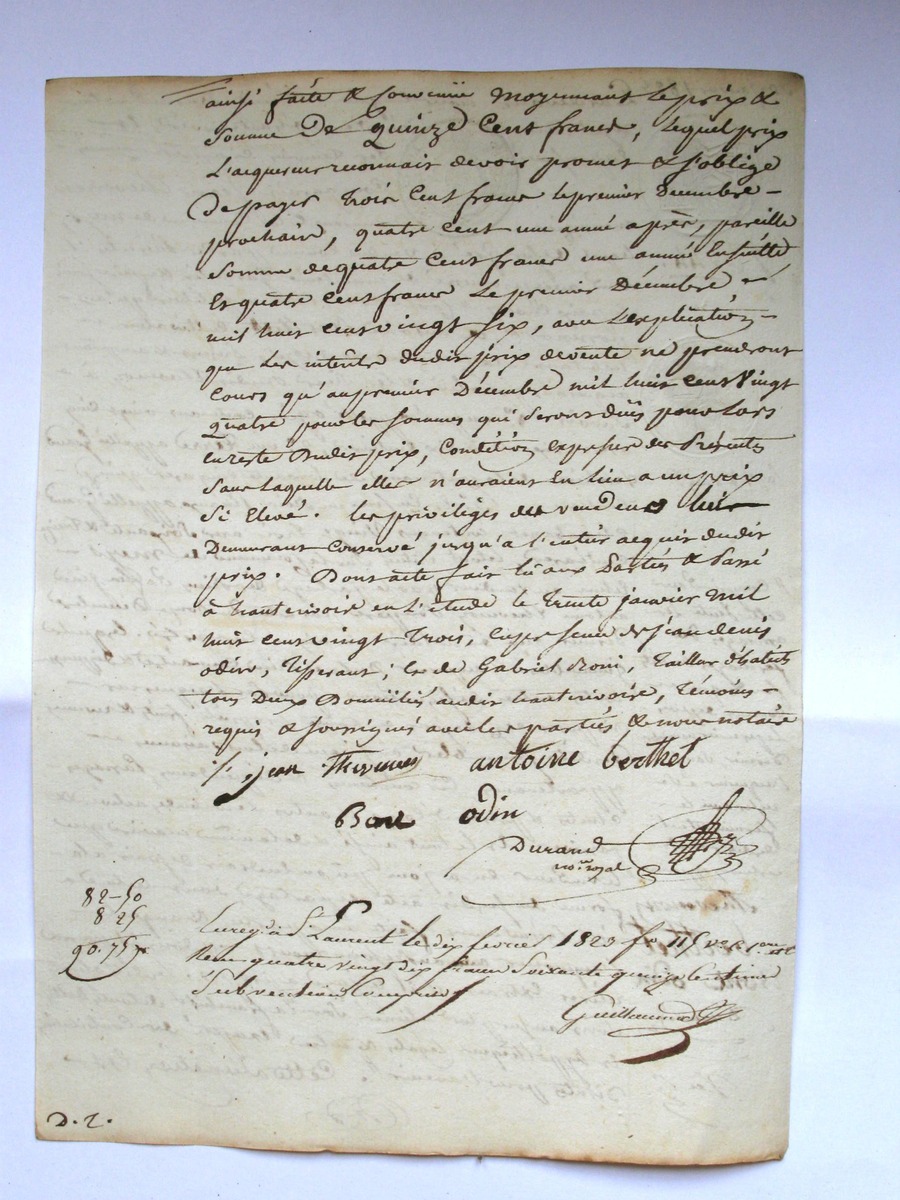 ainsi faite & convenüe moyennant le prix &
somme De Quinze Cent francs, lequel prix
L'acquereur reconnait devoir promet & s'oblige
De payer trois Cent francs le premier Décembre -
prochain, quatre cent une anné après, pareille
somme de quatre Cent francs une anné Ensuitte
Et quatre Cent francs Le premier Décembre -
mil huit cent vingt six, avec L'explication -
que Les intérêts dudit prix de vente ne prendront
Cours qu'au premier Décembre mil huit Cent Vingt
quatre pour les sommes qui seront düs pour lors
en reste dudit prix, Condition expresse des Présentes
sans laquelle elles n'auraient Eu lieu a un prix
si Elevé. les privilèges du vendeur lui
Demeurant Conservé jusqu'a l'entier acquis dudit
prix. Dont acte fait lû aux Parties & Passé
à hauterivoire en L'étude le trente janvier mil
huit cent vingt trois, en présence de jean denis
odin, tisserant; & de Gabriel Boni, tailleur d'habits
tous Deux Domiciliés audit hauterivoire, témoins -
requis & soussignés avec les parties & nous notaire
jean antoine berthet
odin
Durand
no.re royal
82-50
8 25
90.75
Enreg. à St Laurent le dix fevrier 1823 f° 115
Reçu quatre vingt dix francs Soixante quinze centimes
Subvention Comprise
Guillaumod
D. 2.